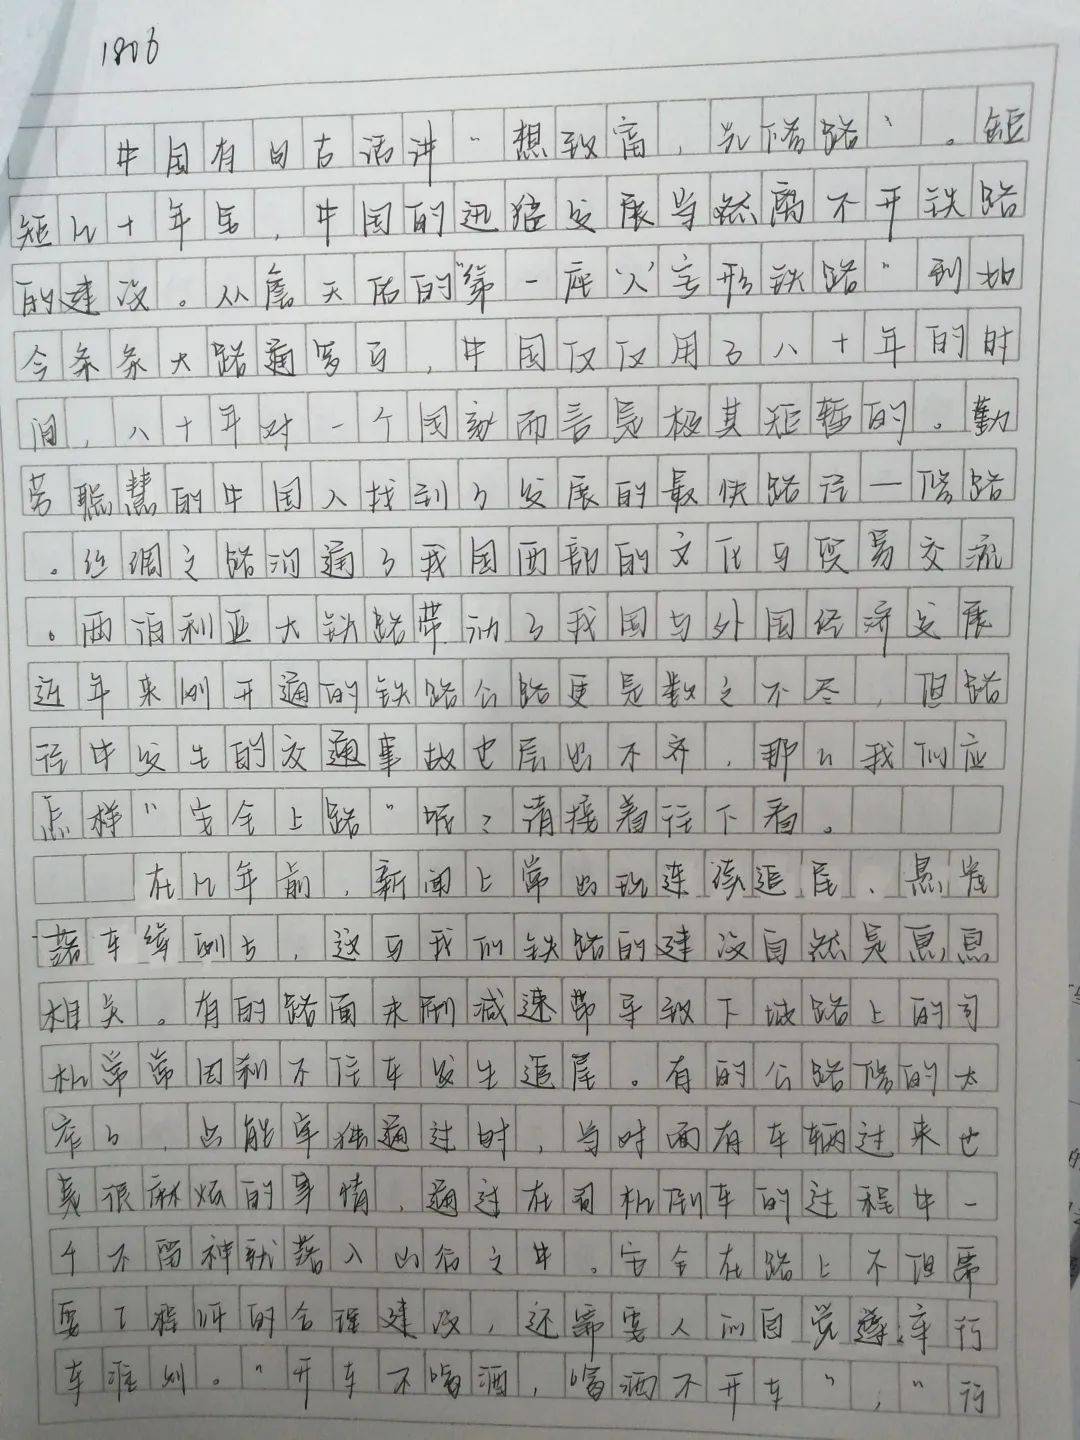 1806
中国有句古话讲“想致富，先修路”。短
短几十年虽，中国的迅猛发展当然离不开铁路
的建设。从詹天佑的“第一座‘人’字形铁路”到如
今条条大路通罗马，中国仅仅用了八十年的时
间，八十年对一个国家而言是极其短暂的。勤
劳聪慧的中国人找到了发展的最快路径—修路
。丝绸之路沟通了我国西部的文化与贸易交流
。西伯利亚大铁路带动了我国与外国经济发展
近年来刚开通的铁路公路更是数之不尽，但路
径中发生的交通事故也层出不齐，那么我们应
怎样“安全上路”呢？请接着往下看。
在几年前，新闻上常出现连续追尾、悬崖
落车等例子，这与我们铁路的建设自然是息息
相关。有的路面未刷减速带导致下坡路上的司
机常常因刹不住车发生追尾。有的公路修的太
窄了，只能单独通过时，当对面有车辆过来也
是很麻烦的事情，通过在司机倒车的过程中一
个不留神就落入山谷之中。安全在路上不但需
要工程师的合理建设，还需要人们自觉遵守行
车准则。“开车不喝酒，喝酒不开车”，“行